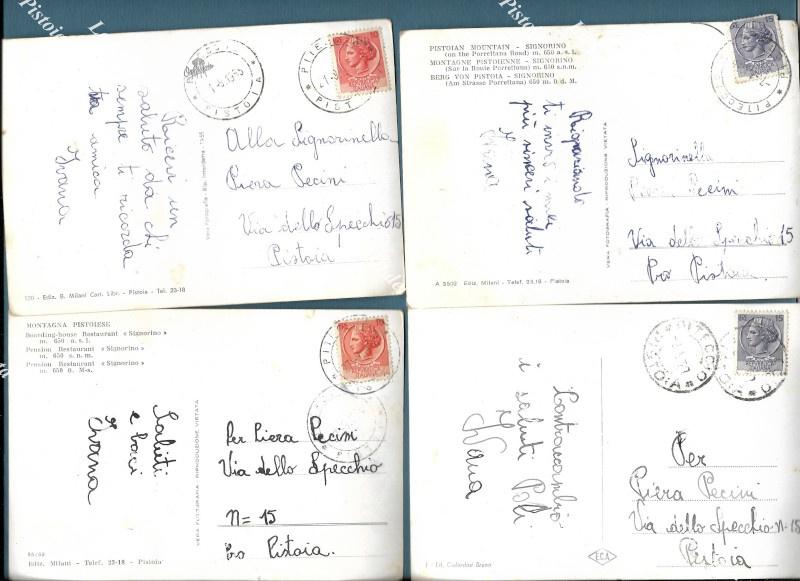 Ricevi un
saluto da chi
sempre ti ricorda
tua amica
Ivana
Alla Signorinella
Piera Pecini
Via dello Specchio 15
Pistoia
120 - Ediz. B. Milani Cart. Libr. - Pistoia - Tel. 23-18
PISTOIAN MOUNTAIN - SIGNORINO
(on the Porrettana Road) m. 650 a.s.l.
MONTAGNE PISTOIENNE - SIGNORINO
(Sur la Route Porrettana) m. 650 s.n.m.
BERG VON PISTOIA - SIGNORINO
(Am Strasse Porrettana) 650 m. ü d. M.
Ringraziando
ti invio i miei
più sinceri saluti
Ivana
VERA FOTOGRAFIA RIPRODUZIONE VIETATA
Signorinella
Piera Pecini
Via dello Specchio 15
Pro Pistoia
Ediz. Milani - Telef. 23.18 - Pistoia
MONTAGNA PISTOIESE
Boarding-house Restaurant «Signorino»
m. 650 a. s. l.
Pension Restaurant «Signorino»
m. 650 s. n. m.
Pension Restaurant «Signorino»
m. 650
Saluti
e baci
Ivana
VERA FOTOGRAFIA RIPRODUZIONE VIETATA
Per Piera Pecini
Via dello Specchio
N= 15
Pro Pistoia.
Ediz. Milani - Telef. 23-18 - Pistoia
Contraccambio
i saluti
Ivana
Per
Piera Pecini
Via dello Specchio N-15
Pistoia
ECA